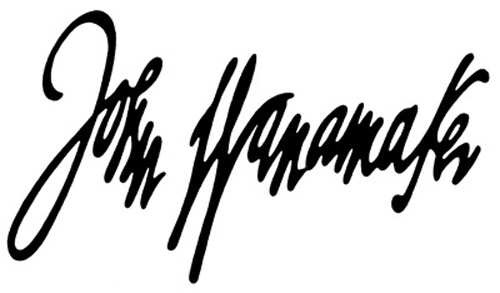 John Wanamaker